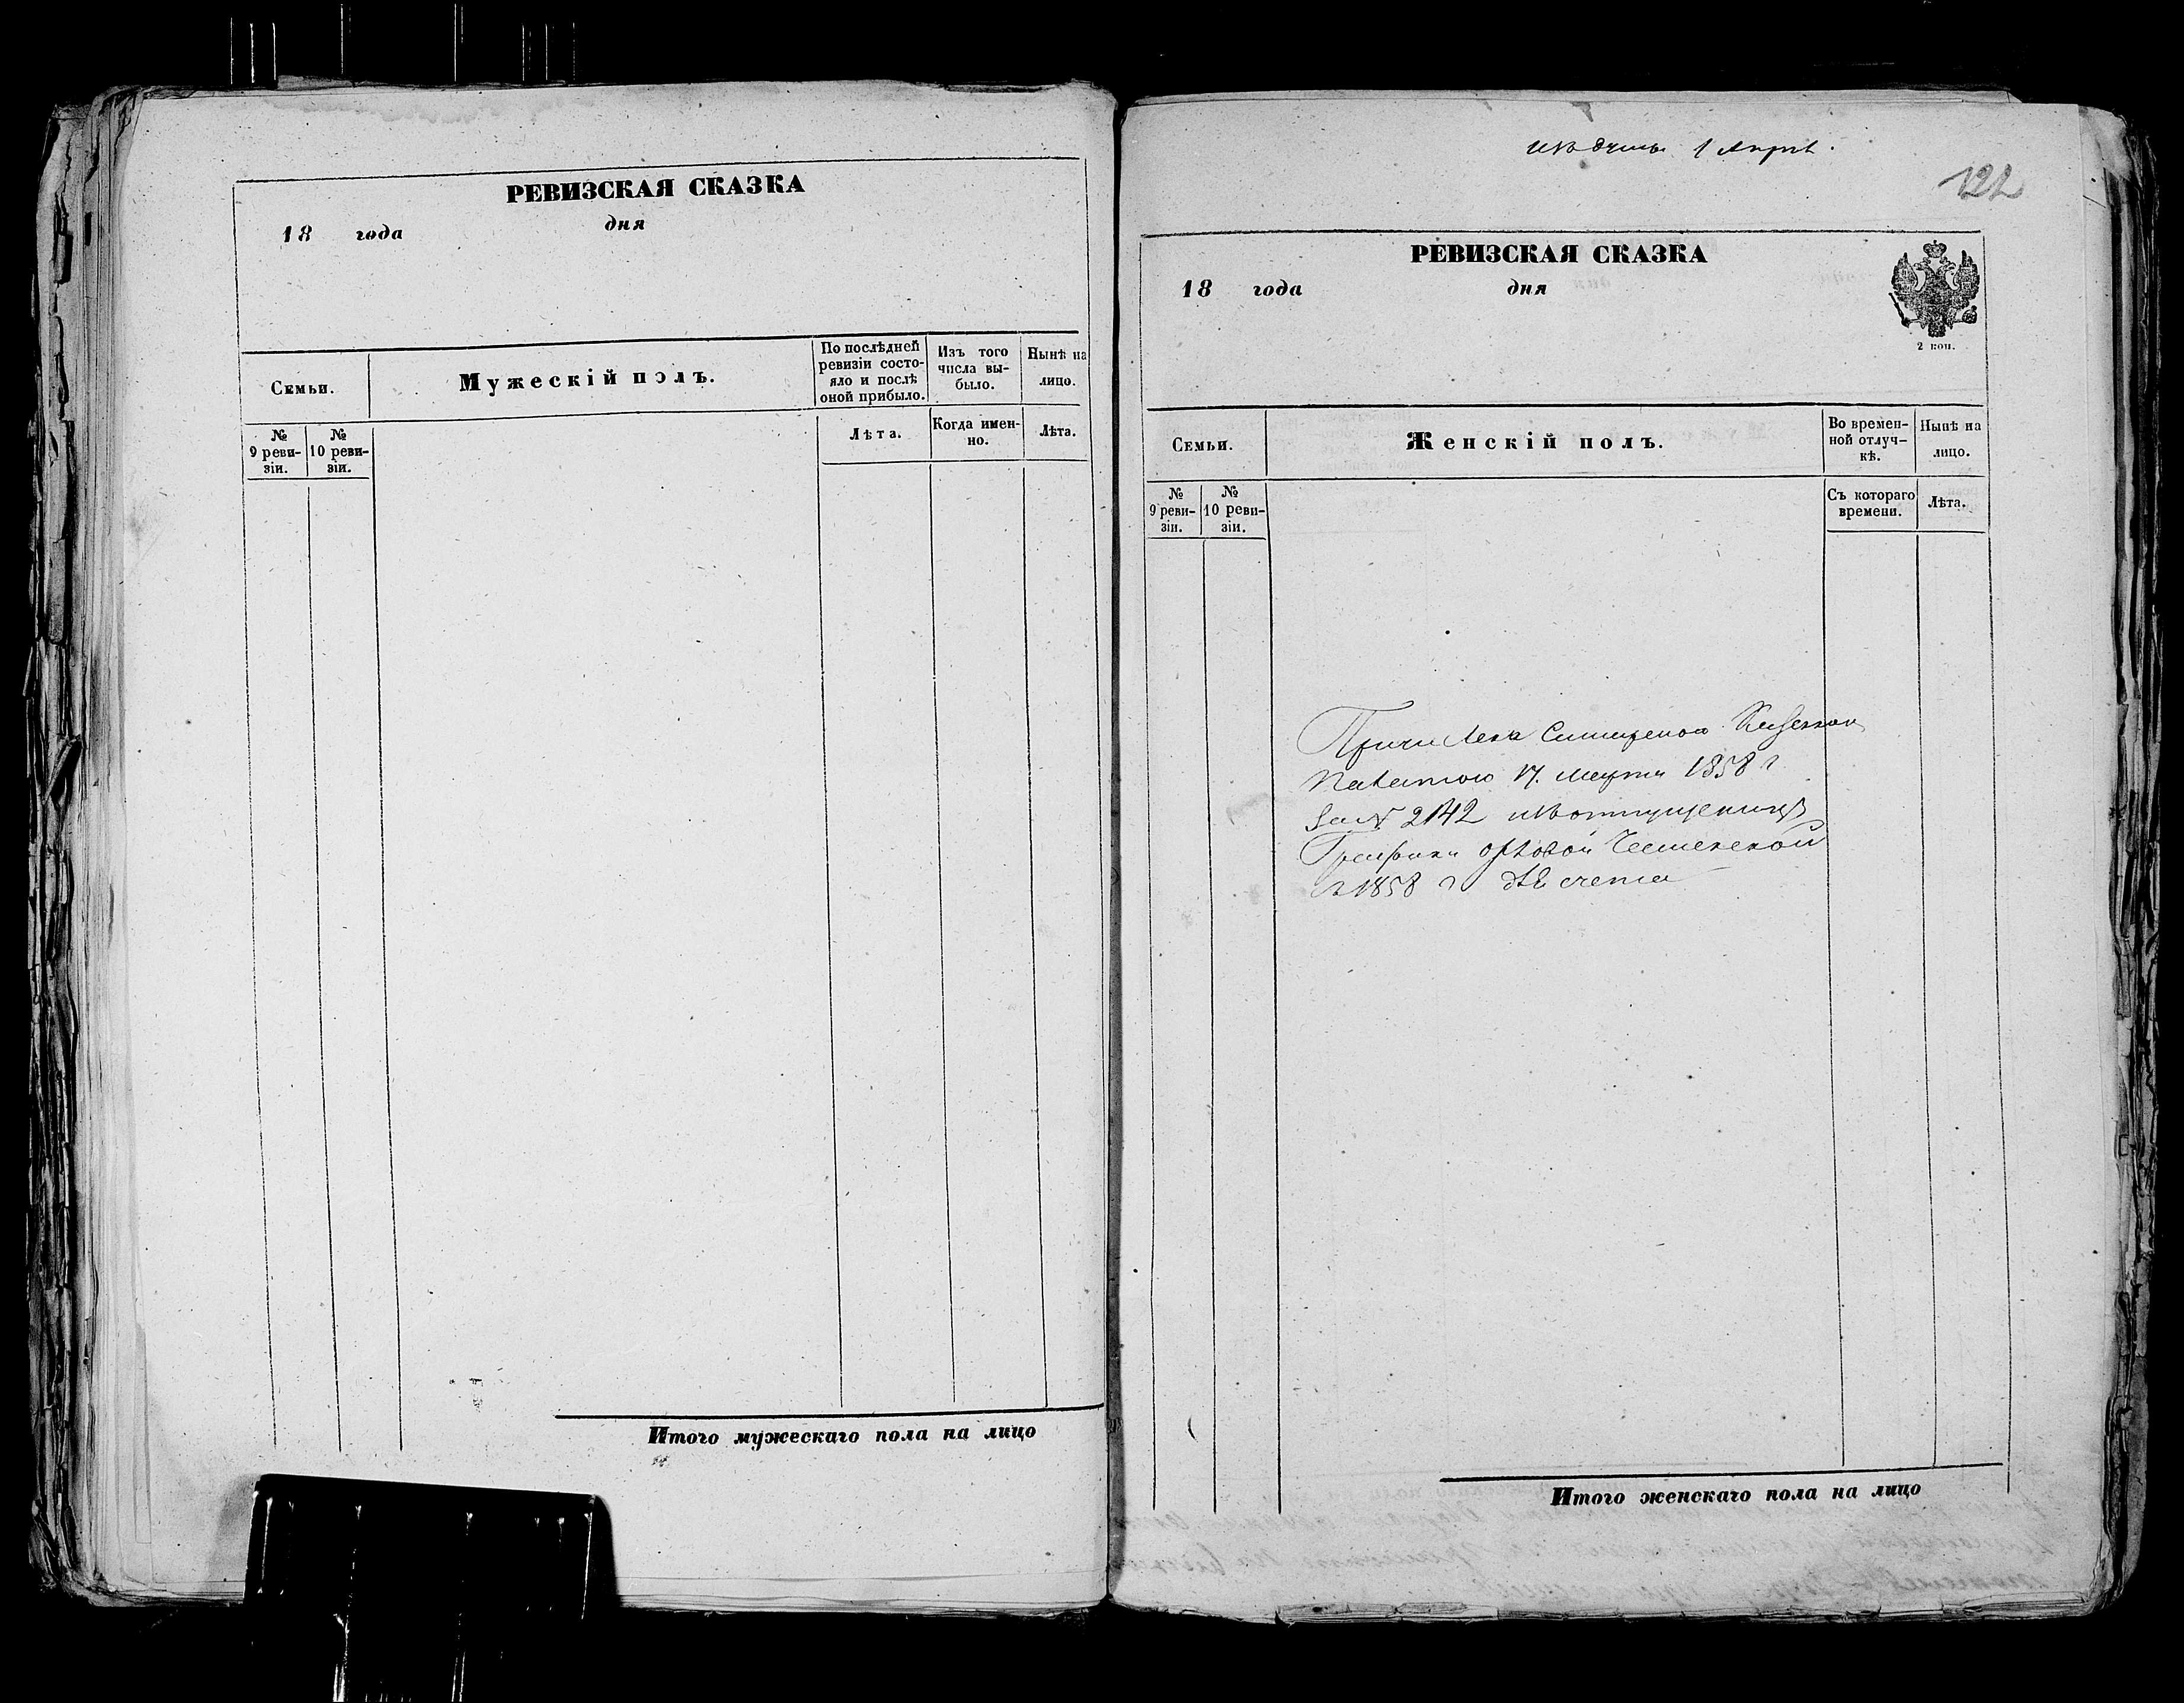 РЕВИЗСКАЯ СКАЗКА
18 года дня
Семьи.
Мужескій полъ.
По послѣдней ревизіи состо-
яло и послѣ оной прибыло.
Изъ того числа вы-
было.
Нынѣ на лицо.
№ 9 реви-
зіи.
№ 10 реви-
зіи.
Лѣта.
Когда имен-
но.
Лѣта.
Итого мужескаго пола на лицо
1 Апрѣ.
122
РЕВИЗСКАЯ СКАЗКА
18 года дня
2 коп.
Семьи.
Женскій полъ.
Во времен-
ной отлуч-
кѣ.
Нынѣ на лицо.
№ 9 реви-
зіи.
№ 10 реви-
зіи.
Съ котораго времени.
Лѣта.
Причислена Казенною
Палатою 17. Марта 1858 г
за № 2142
Графини Орловой Чесменской
съ 1858 г для счета
Итого женскаго пола на лицо